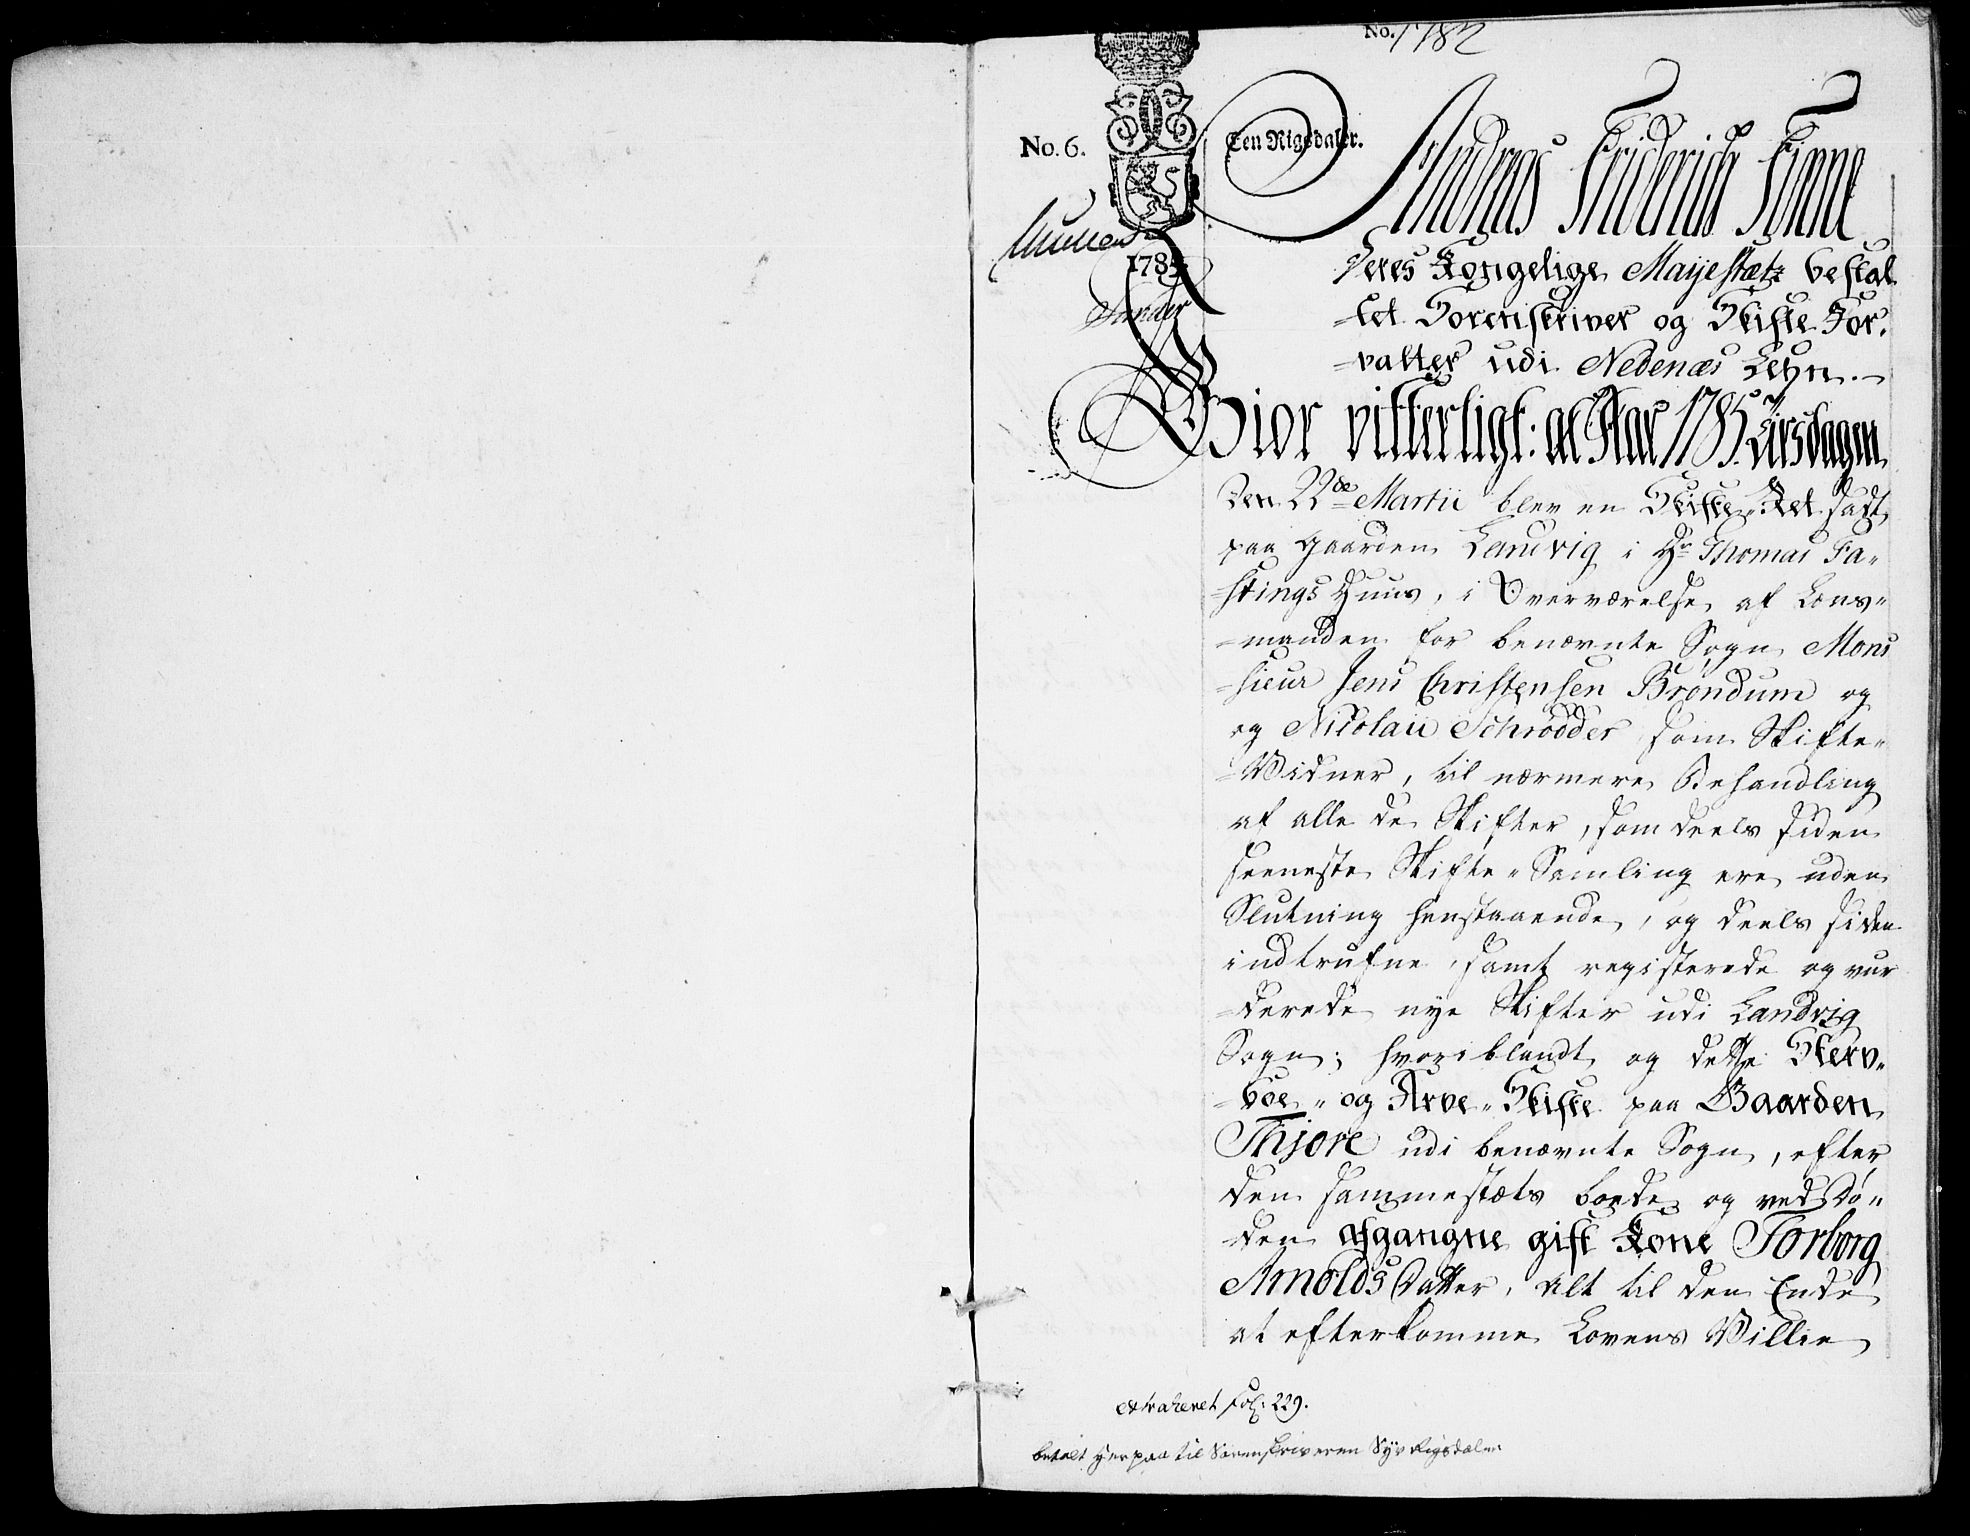 No. 1782
No. 6.
Een Rigsdaler.
1785
Andreas Friderich Finne
Deres Kongelige Mayestætz bestal
-let Sorenskriver og Skifte For-
-valter udi Nedenæs Lehn.
Giør vitterligt: at Aar 1785 Tirsdagen
Den 22de Martii blev en Skifte-Ret sadt
paa Gaarden Landvig i Hr Thomas Fa-
-stings Huus, i Overværelse af Lens-
-manden for benævnte Sogn Mons
-sieur Jens Christensen Brøndum og
og Nicolaii Schrødder som Skifte-
-Vidner, til nærmere Behandling
af alle de Skifter, som deels siden
seeneste Skifte-Samling ere uden
Slutning henstaaende, og deels siden
indtrufne, samt registerede og vur
-derede nye Skifter udi Landvig
Sogn; hvoriblandt og dette Sterv-
-boe- og Arve-Skifte paa Gaarden
Thjøre udi benævnte Sogn, efter
den sammestæts boede og ved Dø-
-den afgangne gift Kone Torborg
Arnolds Datter, Alt til den Ende
at efterkomme Lovens Villie
extraheret Fol: 229.
betalt herpaa til Sorenskriveren Syv Rigsdaler